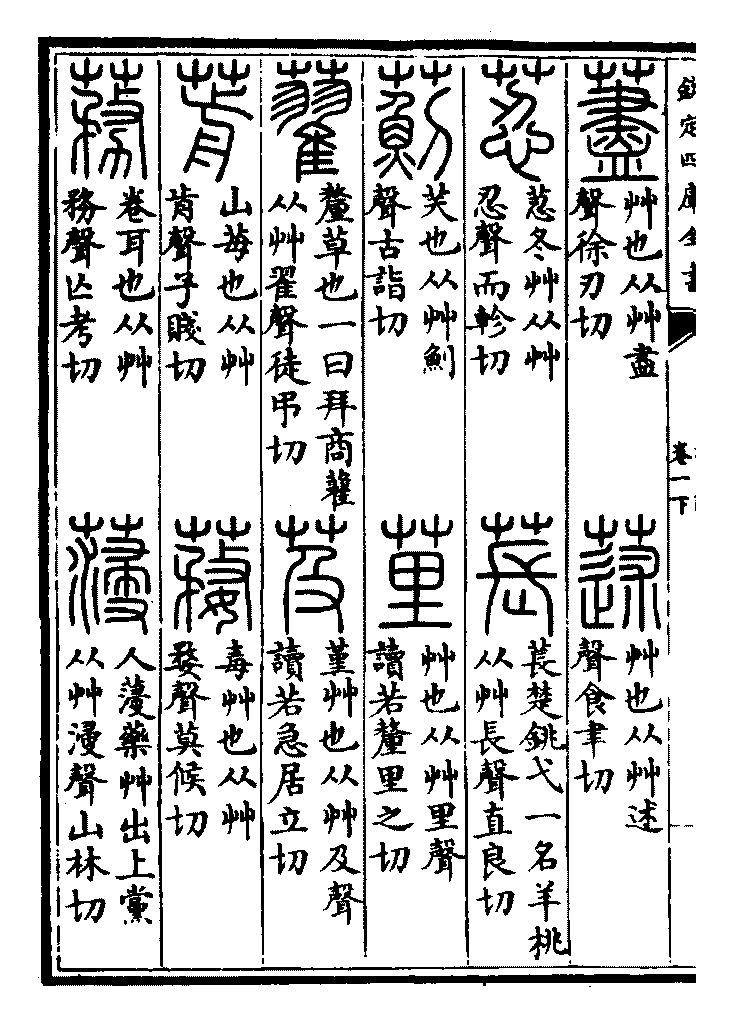 欽定四庫全書
卷一下
藎
艸也从艸盡
聲徐刃切
蒁
艸也从艸述
聲食聿切
荵
荵冬艸从艸
忍聲而軫切
萇
萇楚銚弋一名羊桃
从艸長聲直良切
薊
芺也从艸魝
聲古詣切
荲
艸也从艸里聲
讀若釐里之切
藋
釐草也一曰拜商藋
从艸翟聲徒弔切
芨
堇艸也从艸及聲
讀若急居立切
葥
山苺也从艸
歬聲子賤切
毒艸也从艸
婺聲莫候切
蓩
卷耳也从艸
務聲亡考切
薓
人薓藥艸出上黨
从艸𣹰聲山林切